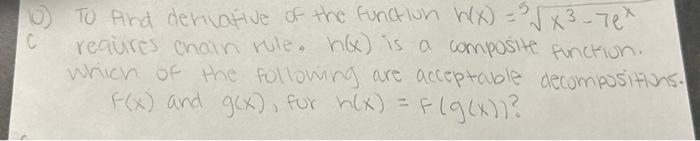 10) To find derivative of the function h(x) = ⁵√x³-7eˣ
C requires chain rule. h(x) is a composite function.
Which of the following are acceptable decompositions.
f(x) and g(x), for h(x) = f(g(x))?